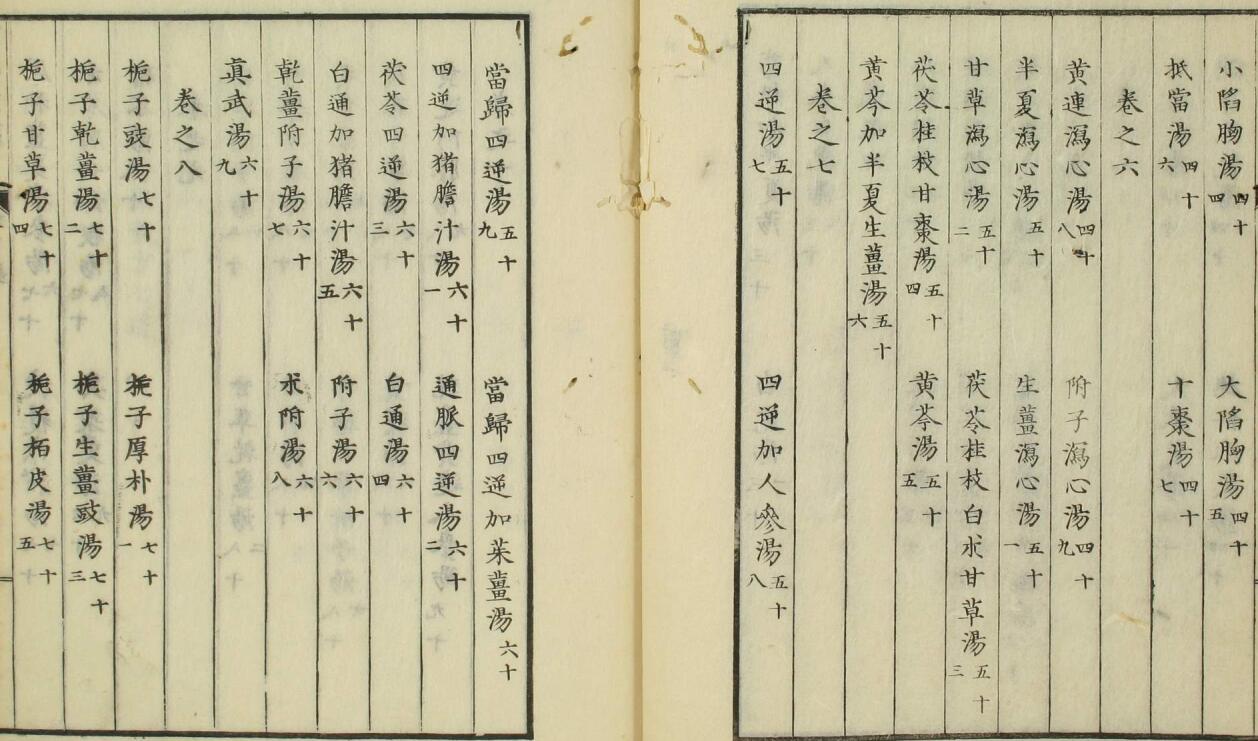 小陷胸湯四十四 大陷胸湯四十五
抵當湯四十六 十棗湯四十七
卷之六
黃連瀉心湯四十八 附子瀉心湯四十九
半夏瀉心湯五十 生薑瀉心湯五十一
甘草瀉心湯五十二 茯苓桂枝白朮甘草湯五十三
茯苓桂枝甘棗湯五十四 黃芩湯五十五
黃芩加半夏生薑湯五十六
卷之七
四逆湯五十七 四逆加人參湯五十八
當歸四逆湯五十九 當歸四逆加茱薑湯六十
四逆加猪膽汁湯六十一 通脈四逆湯六十二
茯苓四逆湯六十三 白通湯六十四
白通加猪膽汁湯六十五 附子湯六十六
乾薑附子湯六十七 朮附湯六十八
眞武湯六十九
卷之八
梔子豉湯七十 梔子厚朴湯七十一
梔子乾薑湯七十二 梔子生薑豉湯七十三
梔子甘草湯七十四 梔子栢皮湯七十五